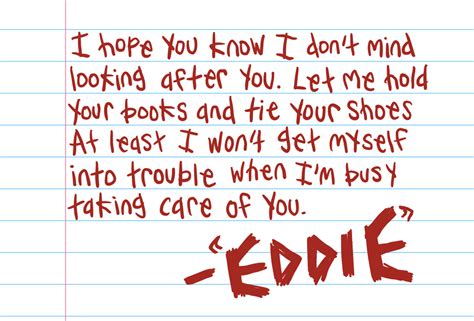 I hope you know I don't mind
looking after you. Let me hold
your books and tie your shoes
At least I won't get myself
into trouble when I'm busy
taking care of you.
-"EDDIE"